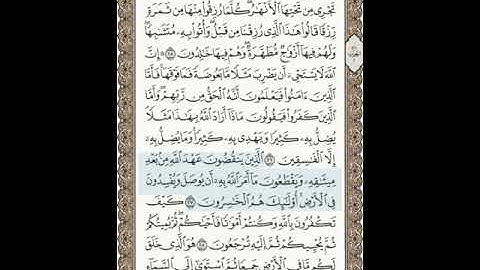 تَجْرِي مِن تَحْتِهَا ٱلْأَنْهَٰرُ كُلَّمَا رُزِقُوا۟ مِنْهَا مِن ثَمَرَةٍ
رِّزْقًا قَالُوا۟ هَٰذَا ٱلَّذِي رُزِقْنَا مِن قَبْلُ وَأُتُوا۟ بِهِۦ مُتَشَٰبِهًا
وَلَهُمْ فِيهَا أَزْوَٰجٌ مُّطَهَّرَةٌ وَهُمْ فِيهَا خَٰلِدُونَ إِنَّ
ٱللَّهَ لَا يَسْتَحْيِۦ أَن يَضْرِبَ مَثَلًا مَّا بَعُوضَةً فَمَا فَوْقَهَا فَأَمَّا
ٱلَّذِينَ ءَامَنُوا۟ فَيَعْلَمُونَ أَنَّهُ ٱلْحَقُّ مِن رَّبِّهِمْ وَأَمَّا
ٱلَّذِينَ كَفَرُوا۟ فَيَقُولُونَ مَاذَا أَرَادَ ٱللَّهُ بِهَٰذَا مَثَلًا
يُضِلُّ بِهِۦ كَثِيرًا وَيَهْدِي بِهِۦ كَثِيرًا وَمَا يُضِلُّ بِهِۦ
إِلَّا ٱلْفَٰسِقِينَ ٱلَّذِينَ يَنقُضُونَ عَهْدَ ٱللَّهِ مِنۢ بَعْدِ
مِيثَٰقِهِۦ وَيَقْطَعُونَ مَا أَمَرَ ٱللَّهُ بِهِۦ أَن يُوصَلَ وَيُفْسِدُونَ
فِي ٱلْأَرْضِ أُو۟لَٰئِكَ هُمُ ٱلْخَٰسِرُونَ كَيْفَ
تَكْفُرُونَ بِٱللَّهِ وَكُنتُمْ أَمْوَٰتًا فَأَحْيَٰكُمْ ثُمَّ يُمِيتُكُمْ
ثُمَّ يُحْيِيكُمْ ثُمَّ إِلَيْهِ تُرْجَعُونَ هُوَ ٱلَّذِي خَلَقَ
لَكُم مَّا فِي ٱلْأَرْضِ جَمِيعًا ثُمَّ ٱسْتَوَىٰ إِلَى ٱلسَّمَاءِ